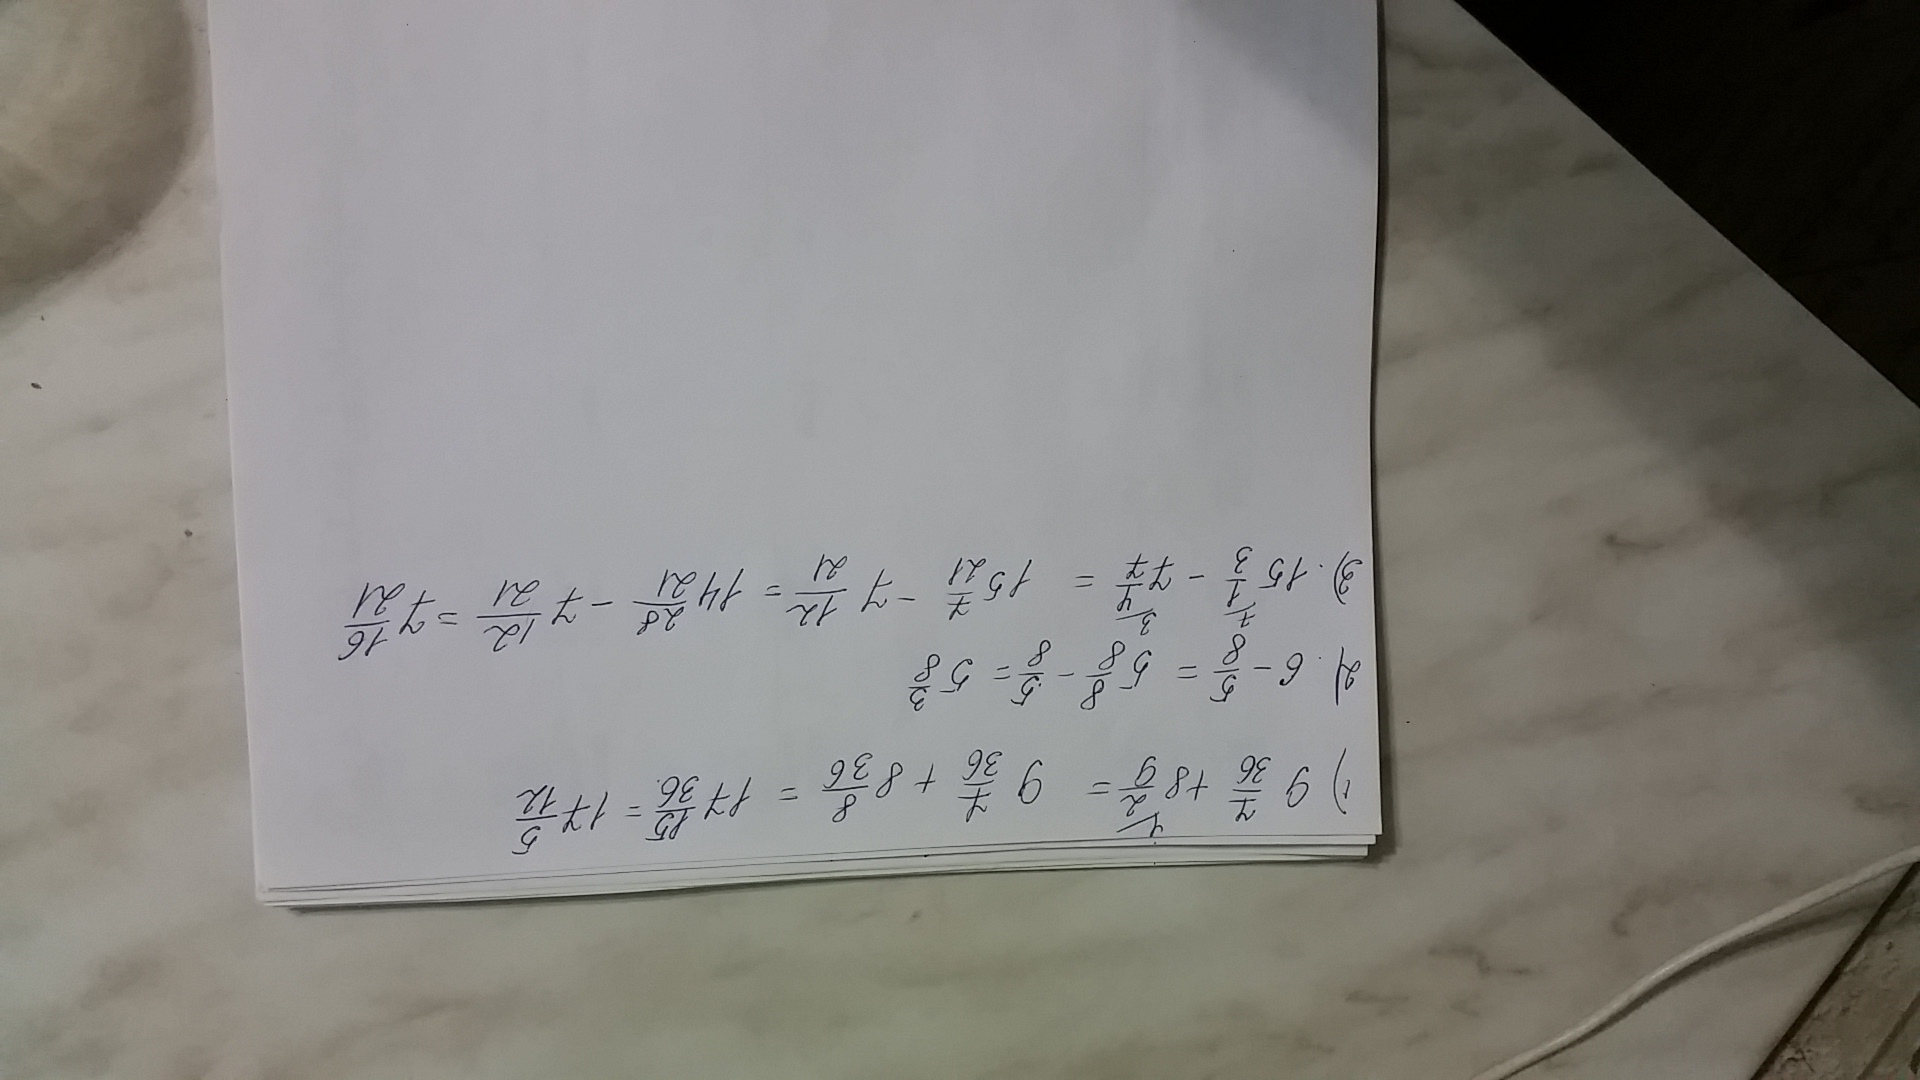 1) 9 7/36 + 8 2/9 = 9 7/36 + 8 8/36 = 17 15/36 = 17 5/12
2). 6 - 5/8 = 5 8/8 - 5/8 = 5 3/8
3). 15 1/3 - 7 4/7 = 15 7/21 - 7 12/21 = 14 28/21 - 7 12/21 = 7 16/21